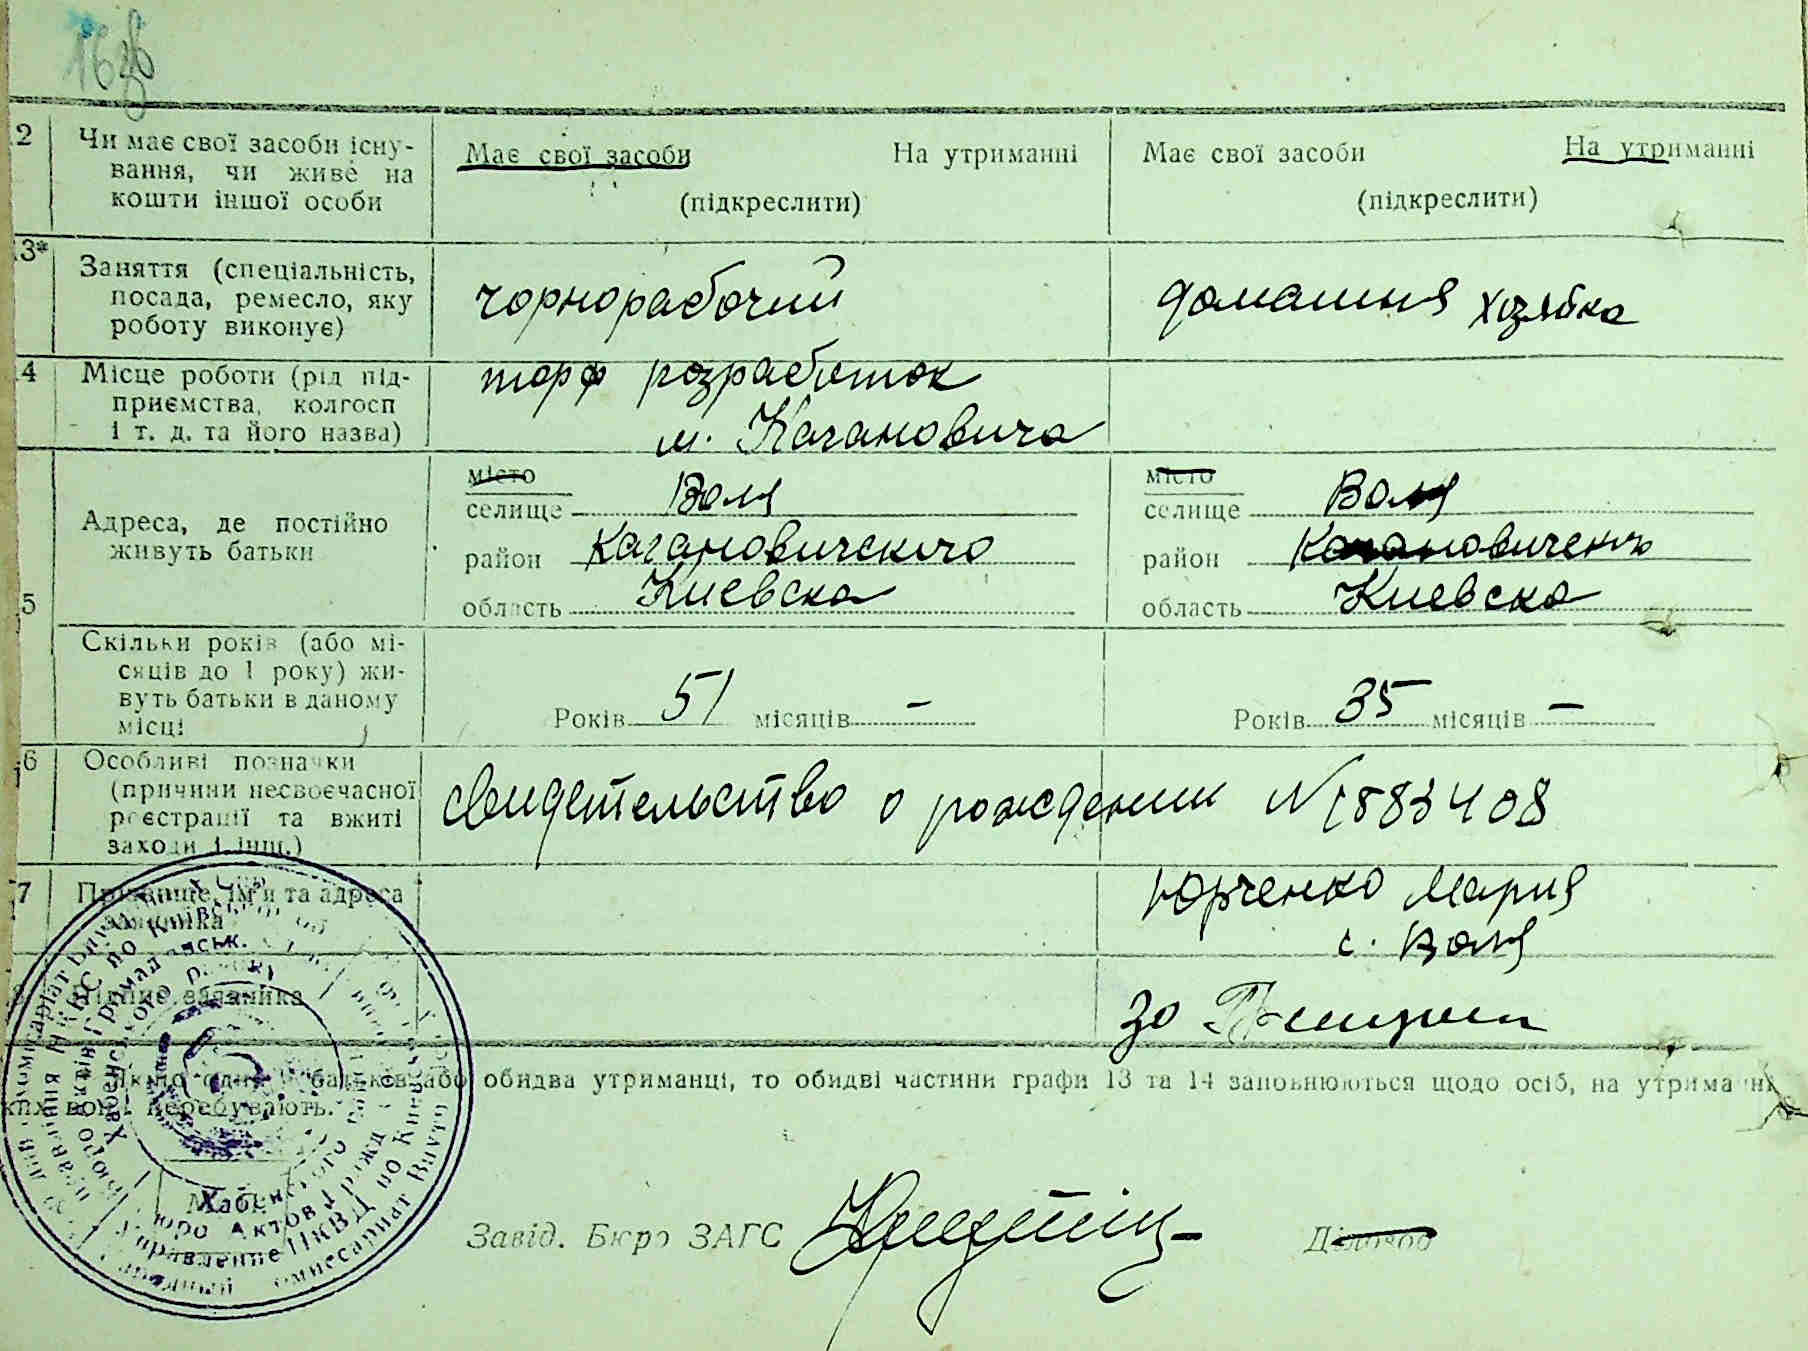 2 Чи має свої засоби існу-
вання, чи живе на
кошти іншої особи
Має свої засоби На утриманні
(підкреслити)
Має свої засоби На утриманні
(підкреслити)
3* Заняття (спеціальність,
посада, ремесло, яку
роботу виконує)
чорнорабочий
домашня хозяйка
4 Місце роботи (рід під-
приємства, колгосп
і т. д. та його назва)
торф розработок
м. Кагановича
5 Адреса, де постійно
живуть батьки
місто
селище Воля
район Кагановичского
область Киевска
місто
селище Воля
район
область Киевска
Скільки років (або мі-
сяців до 1 року) жи-
вуть батьки в даному
місці
Років 51 місяців –
Років 35 місяців –
6 Особливі позначки
(причини несвоєчасної
реєстрації та вжиті
заходи і інш.)
свидетельство о рождении №
7 Прізвище, ім'я та адреса
заявника
Юрченко Мария
с. Воля
Підпис заявника
за
Якщо один з батьків або обидва утриманці, то обидві частини графи 13 та 14 заповнюються щодо осіб, на утриманні
яких вони перебувають.
Завід. Бюро ЗАГС
Діловод